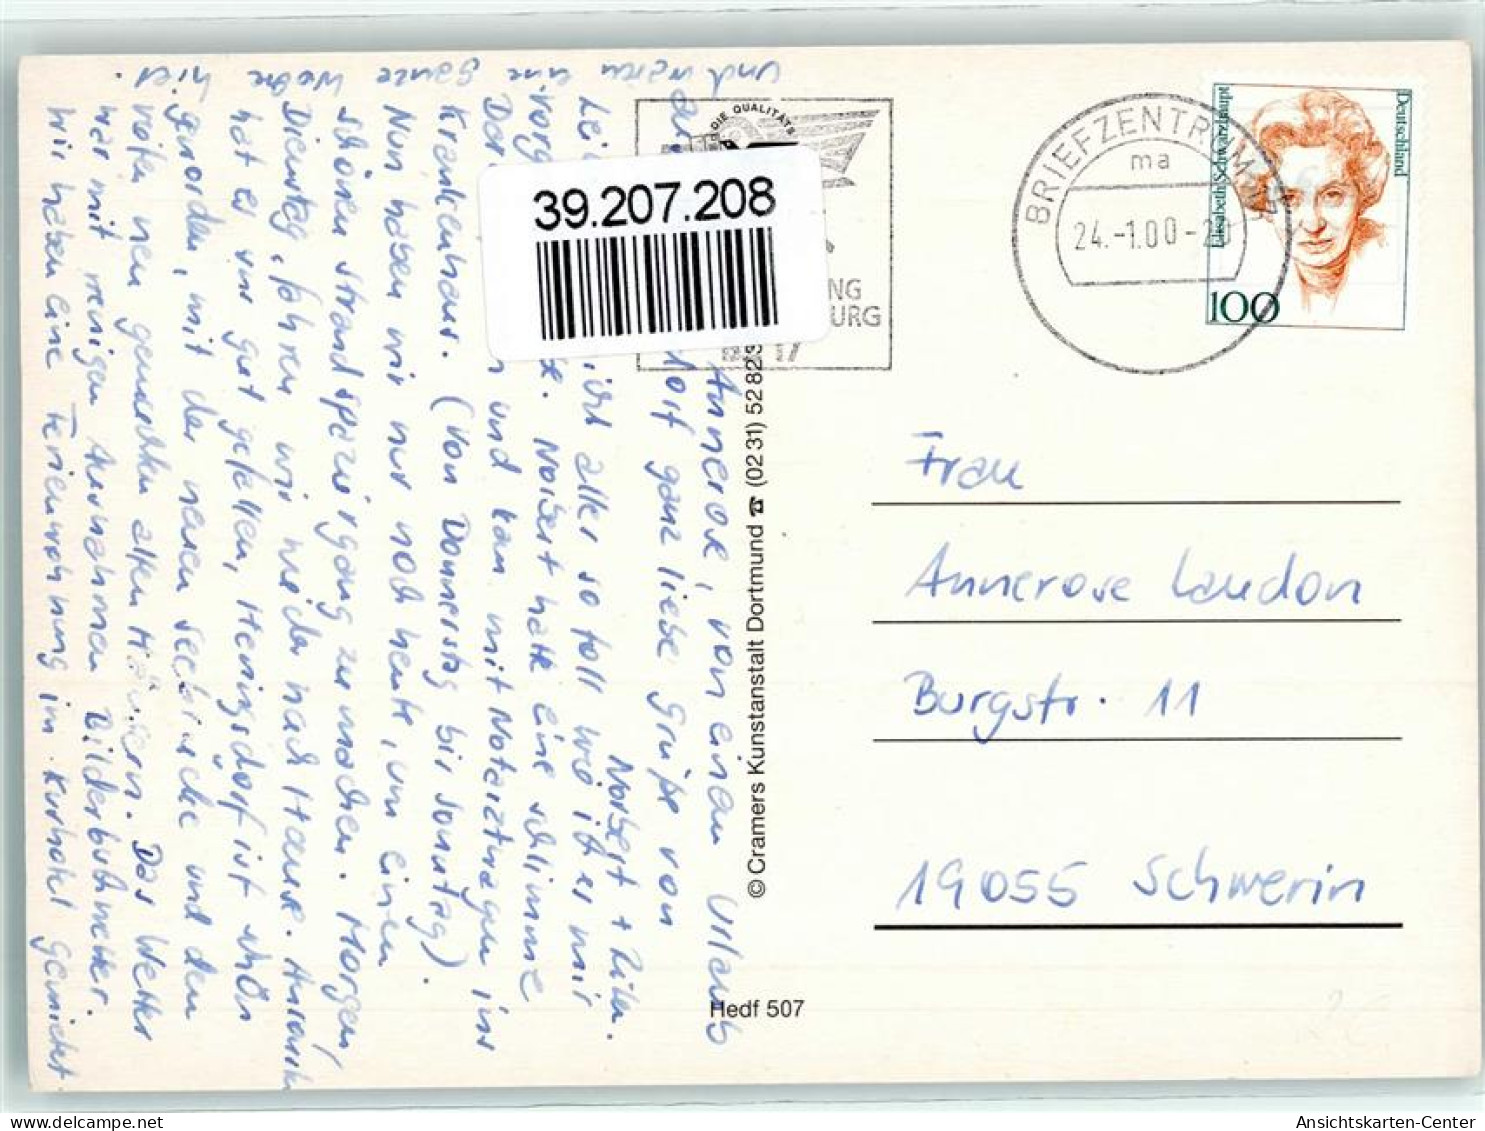 Annerose, von einem Urlaub
dorf ganz liebe Grüße von
Norbert +
alles so toll wie ich es mir
Norbert hatte eine schlimme
und kam mit Notarztwagen ins
Krankenhaus. (Von Donnerstag bis Sonntag).
Nun haben wir nur noch heute, um einen
schönen Strandspaziergang zu machen. Morgen,
Dienstag, fahren wir wieder nach Hause.
hat es uns gut gefallen, Heringsdorf ist schön
geworden, mit der neuen Seebrücke und den
vielen neu gemachten alten Häusern. Das Wetter
war mit wenigen Ausnahmen Bilderbuchwetter.
Wir haben eine Ferienwohnung im Kurhotel gemietet
und waren eine ganze Woche hier.
39.207.208
DIE QUALITÄTS
NG
URG
BRIEFZENTRUM
ma
24.-1.00-20
Deutschland
Elisabeth Schwarzhaupt
100
Frau
Annerose Laudon
Burgstr. 11
19055 Schwerin
© Cramers Kunstanstalt Dortmund ☎ (02 31) 52 82 3
Hedf 507
2 €
Ansichtskarten-Center